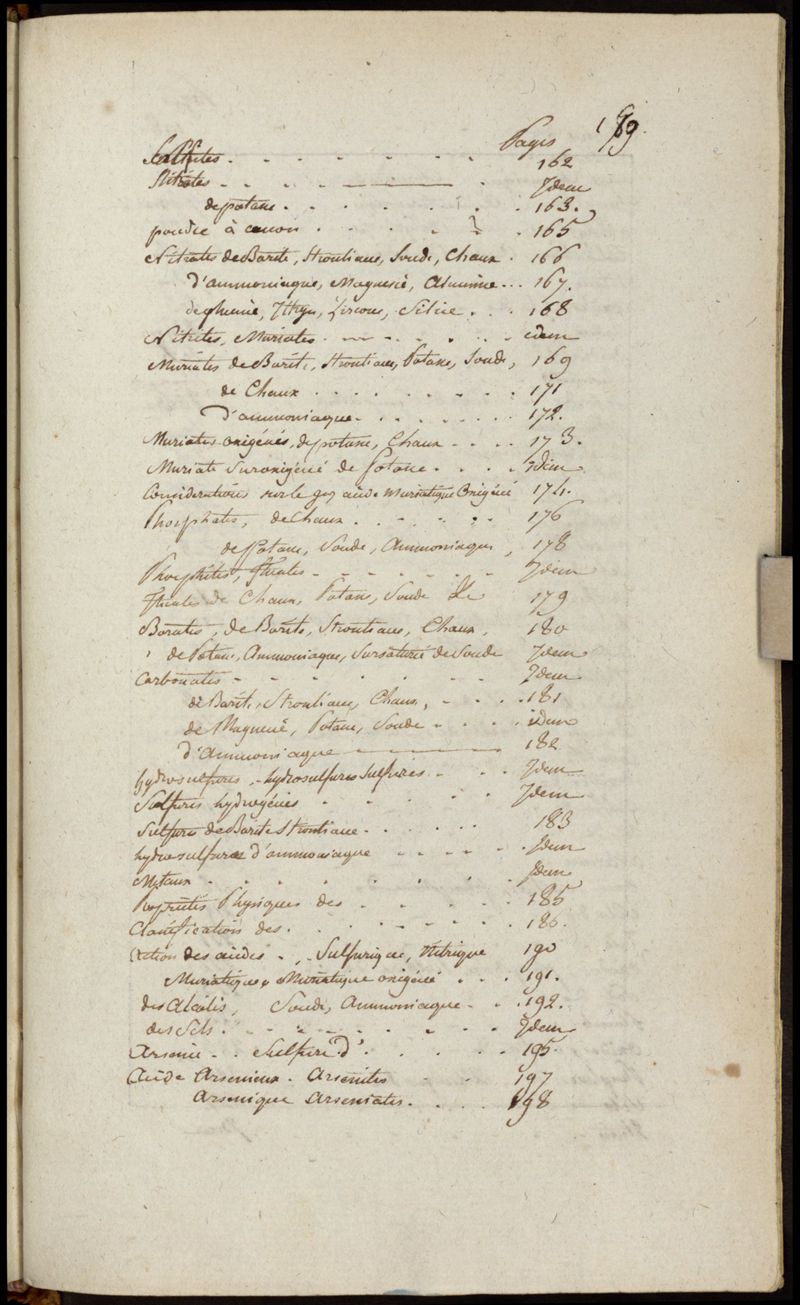 Pages
Sulfites - - - - - - - 162
Nitrates - - - - Idem
de potasse . . . . . . . 163.
poudre à canon . . . . . 165
Nitrates de Barite, Strontiane, Soude, Chaux . 166
d'ammoniaque, Magnesie, Alumine ... 167.
de glucine, Yttya, Zircone, Silice . . . 168
Nitrites, Muriates . - - . . . . idem
Muriates de Barite, Strontiane, Potasse, Soude, 169
de Chaux . . . . . . . . . 171
d'ammoniaque . . . . . . . . 172.
Muriates oxigénés, de potasse, Chaux . . . . 173.
Muriate Suroxigéné de Potasse . . . . Idem
Considerations sur le gaz acide Muriatique Oxigéné 174.
Phosphates, de Chaux . . . . . . 176
de Potasse, Soude, Ammoniaque , 178
Phosphites, fluates - - - - - - - Idem
fluates de Chaux, Potasse, Soude &c 179
Borates, de Barite, Strontiane, Chaux, 180
de Potasse, Ammoniaque, Sursaturé de Soude Idem
Carbonates - - - - - - - Idem
de Barite, Strontiane, Chaux, - . . . 181
de Magnesie, Potasse, Soude - . . . idem
d'Ammoniaque 182
hydrosulfures, - hydrosulfures Sulfurés - . . . Idem
Sulfures hydrogénés . . . . . Idem
Sulfures de Barite Strontiane . . . . . . 183
hydrosulfures d'ammoniaque - - - - - . Idem
Metaux - . . . . . . . Idem
Propriétés Physiques des . . . . . . 185
Classification des . . . . . - - - - . 186.
Action des acides - , - Sulfurique, Nitrique 190
Muriatique, Muriatique oxigéné . . . 191.
des Alcalis, Soude, Ammoniaque - . . 192.
des Sels . - - - - - - - - Idem
Arsenic - . Sulfure d° . . . . . 195.
Acide Arsenieux . Arsenites - - 197
Arsenique Arseniates . . . . . 198